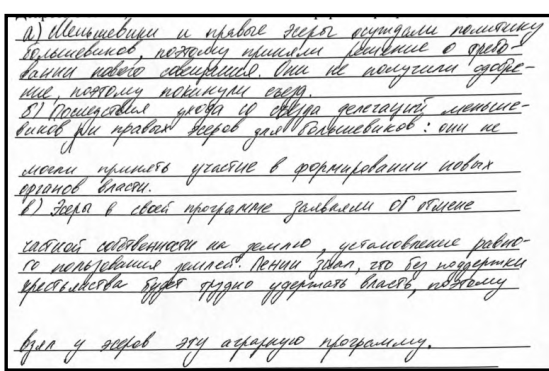 а) Меньшевики и правые эсеры осуждали политику
большевиков, поэтому приняли решение о требо-
вании нового совещания. Они не получили одобре-
ние, поэтому покинули съезд.
б) Последствия ухода со съезда делегаций меньше-
виков и правых эсеров для большевиков: они не
могли принять участие в формировании новых
органов власти.
в) Эсеры в своей программе заявляли об отмене
частной собственности на землю, установление равно-
го пользования землей. Ленин знал, что без поддержки
крестьянства будет трудно удержать власть, поэтому
взял у эсеров эту аграрную программу.